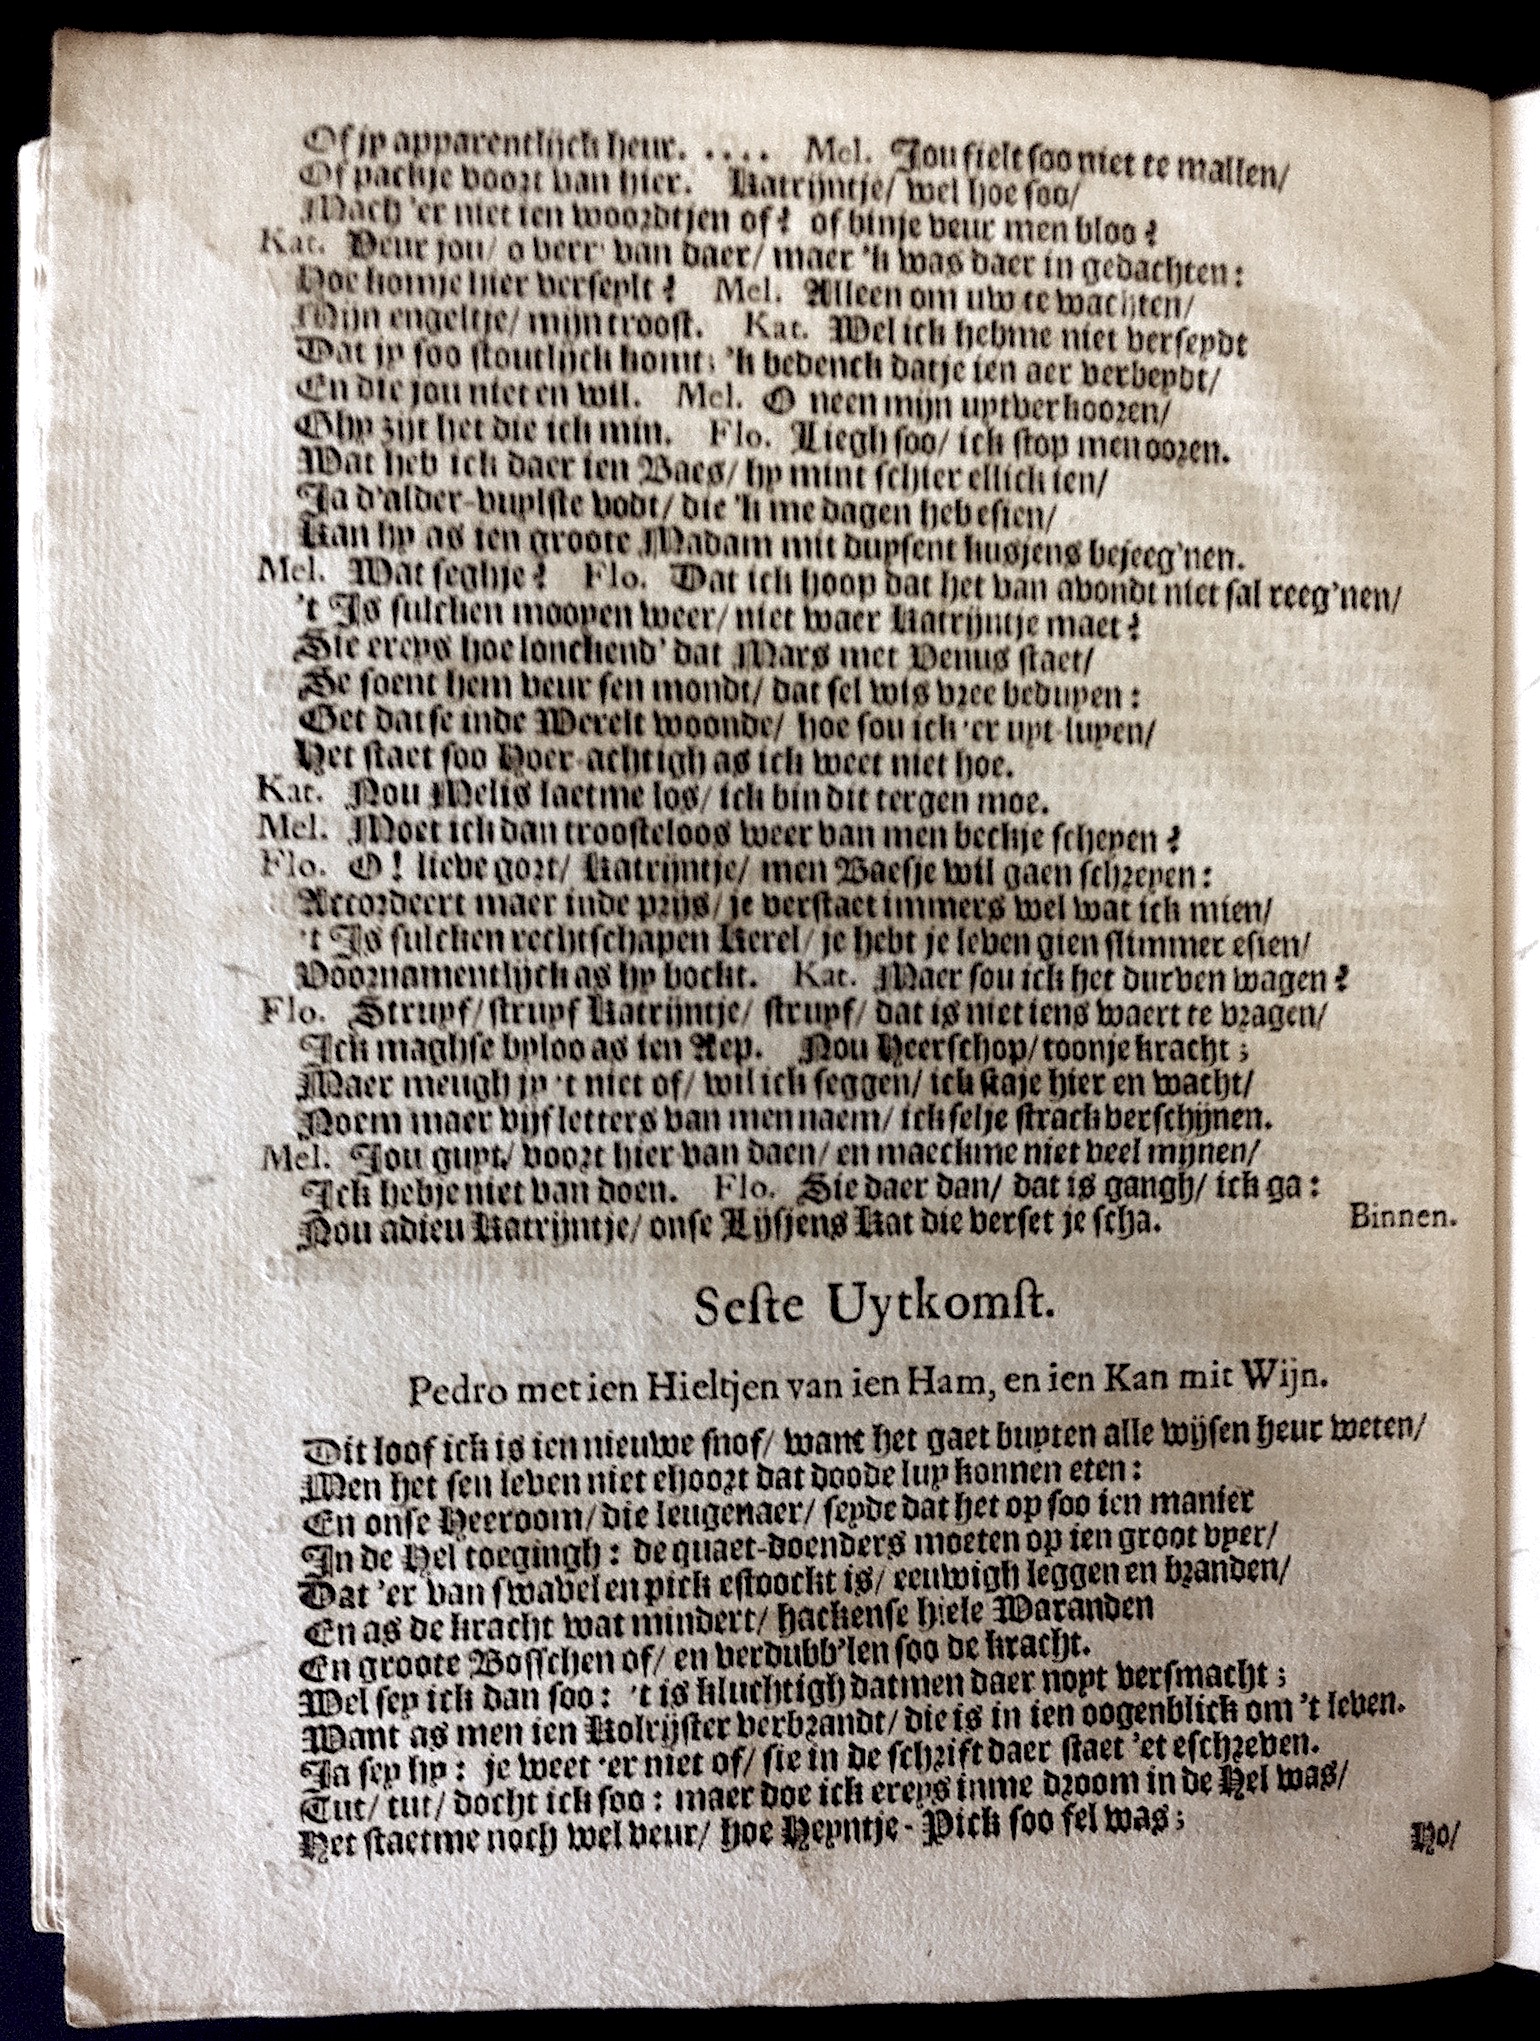 Of jy apparentlijck heur. . . . . Mel. Jou fielt soo niet te mallen/
Of packje voort van hier. Katrijntje/ wel hoe soo/
Mach 'er niet ien woordtjen of? of binje veur men bloo?
Kat. Veur jou/ o verr' van daer/ maer 'k was daer in gedachten:
Hoe komje hier verseylt? Mel. Alleen om uw te wachten/
Mijn engeltje/ mijn troost. Kat. Wel ick hebme niet verseydt
Dat jy soo stoutlijck komt; 'k bedenck datje ien aer verbeydt/
En die jou niet en wil. Mel. O neen mijn uytverkooren/
Ghy zijt het die ick min. Flo. Liegh soo/ ick stop men ooren.
Wat heb ick daer ien Baes/ hy mint schier ellick ien/
Ja d'alder-vuylste vodt/ die 'k me dagen heb esien/
Kan hy as ien groote Madam mit duysent kusjens bejeeg'nen.
Mel. Wat seghje? Flo. Dat ick hoop dat het van avondt niet sal reeg'nen/
't Is sulcken mooyen weer/ niet waer Katrijntje maet?
Sie ereys hoe lonckend' dat Mars met Venus staet/
Se soent hem veur sen mondt/ dat sel wis vree beduyen:
Get dat se inde Werelt woonde/ hoe sou ick 'er uyt-luyen/
Het staet soo Hoer-achtigh as ick weet niet hoe.
Kat. Nou Melis laetme los/ ick bin dit tergen moe.
Mel. Moet ick dan troosteloos weer van men beckje scheyen?
Flo. O! lieve gort/ Katrijntje/ men Baesje wil gaen schreyen:
Accordeert maer inde prijs/ je verstaet immers wel wat ick mien/
't Is sulcken rechtschapen Kerel/ je hebt je leven gien slimmer esien/
Voornamentlijck as hy bockt. Kat. Maer sou ick het durven wagen?
Flo. Struyf/ struyf Katrijntje/ struyf/ dat is niet iens waert te vragen/
Ick maghse byloo as ien Aep. Nou Heerschop/ toonje kracht;
Maer meugh jy 't niet of/ wil ick seggen/ ick staje hier en wacht/
Noem maer vijf letters van men naem/ ick selje strack verschijnen.
Mel. Jou guyt/ voort hier van daen/ en maeckme niet veel mijnen/
Ick hebje niet van doen. Flo. Sie daer dan/ dat is gangh/ ick ga:
Nou adieu Katrijntje/ onse Lijsjens Kat die verset je scha. Binnen.
Seste Uytkomst.
Pedro met ien Hieltjen van ien Ham, en ien Kan mit Wijn.
Dit loof ick is ien nieuwe snof/ want het gaet buyten alle wijsen heur weten/
Men het sen leven niet ehoort dat doode luy konnen eten:
En onse Heeroom/ die leugenaer/ seyde dat het op soo ien manier
In de Hel toegingh: de quaet-doenders moeten op ien groot vyer/
Dat 'er van swavel en pick estoockt is/ eeuwigh leggen en branden/
En as de kracht wat mindert/ hackense hiele Waranden
En groote Bosschen of/ en verdubb'len soo de kracht.
Wel sey ick dan soo: 't is kluchtigh datmen daer noyt versmacht;
Want as men ien Kolrijster verbrandt/ die is in ien oogenblick om 't leven.
Ja sey hy: je weet 'er niet of/ sie in de schrift daer staet 'et eschreven.
Tut/ tut/ docht ick soo: maer doe ick ereys inme droom in de Hel was/
Het staetme noch wel veur/ hoe Heyntje-Pick soo fel was;
Ho/